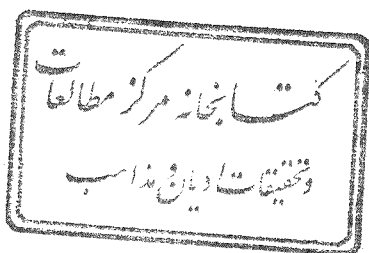 کتابخانه مرکز مطالعات
و تحقیقات ادیان و مذاهب